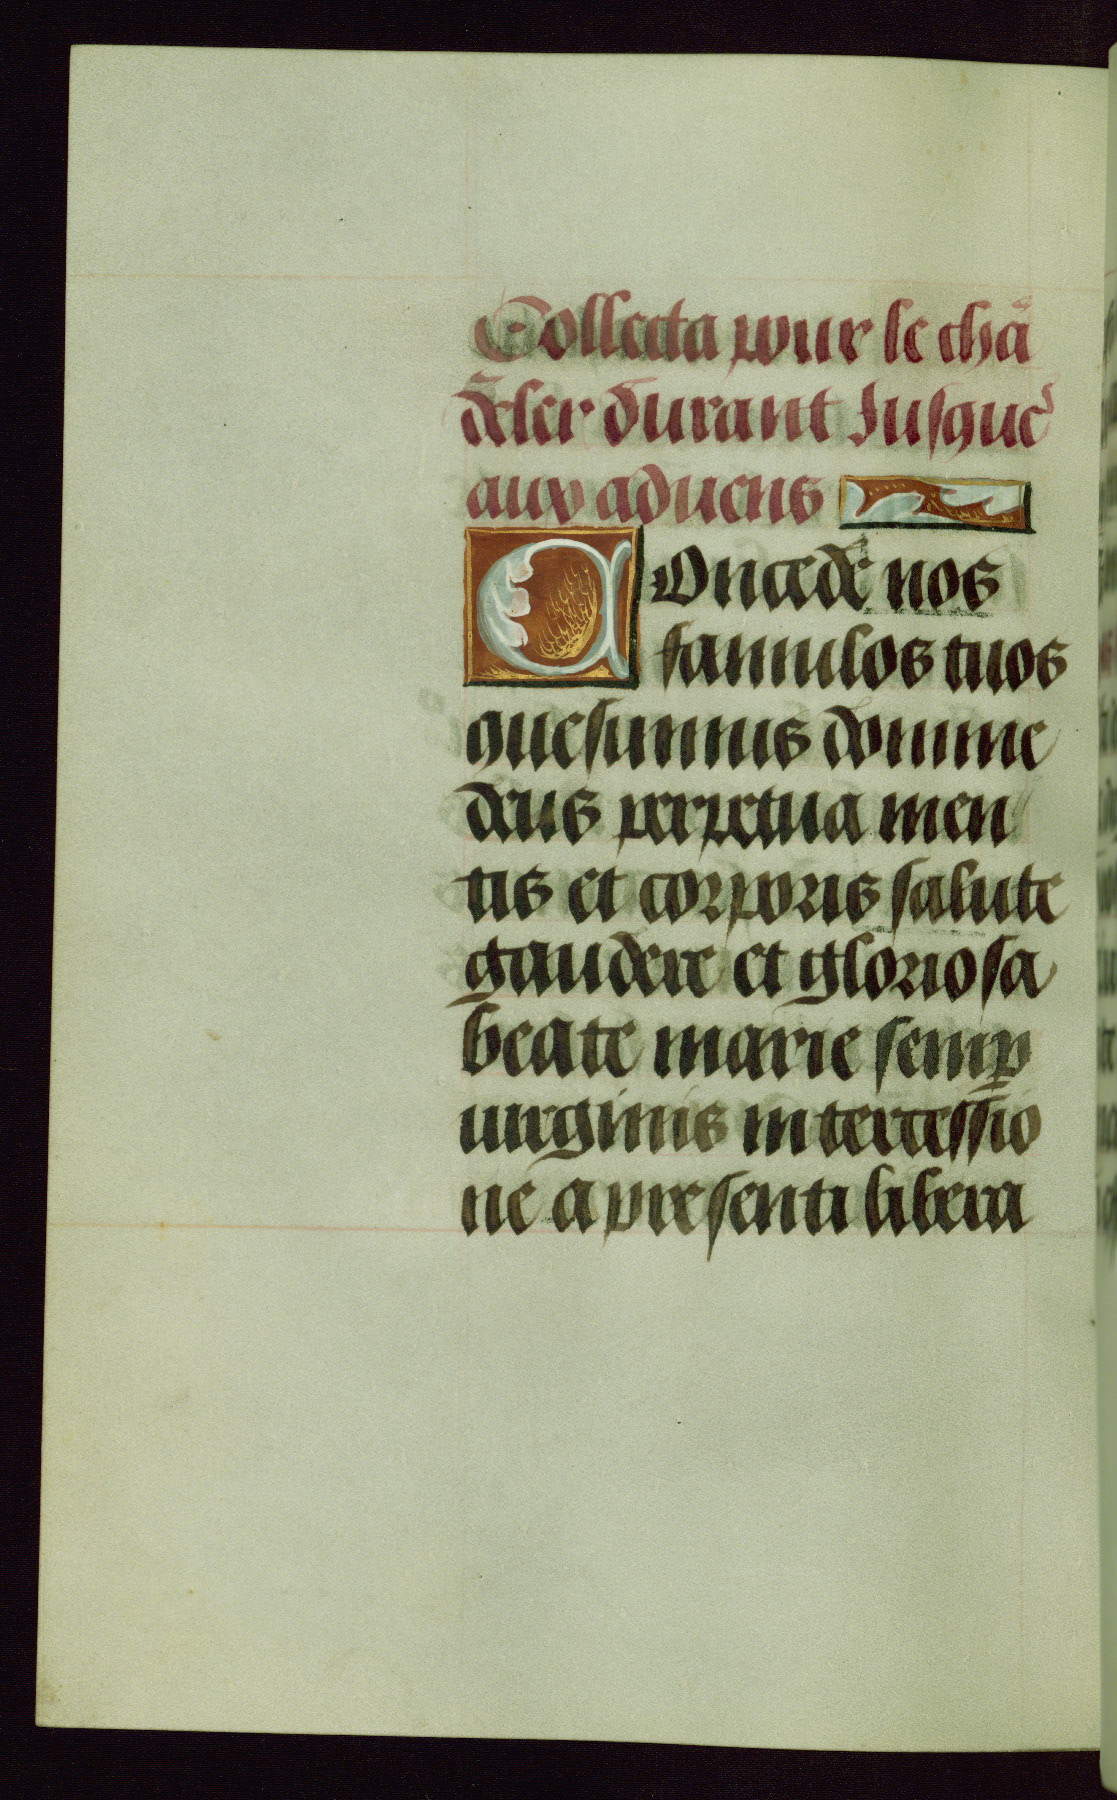 Collecta pour le chā
deler durant Jusques
aux aduens
Concede nos
famulos tuos
quesumus domine
deus perpetua men
tis et corporis salute
gaudere et gloriosa
beate marie semꝑ
uirginis intercessio
ne a presenti libera